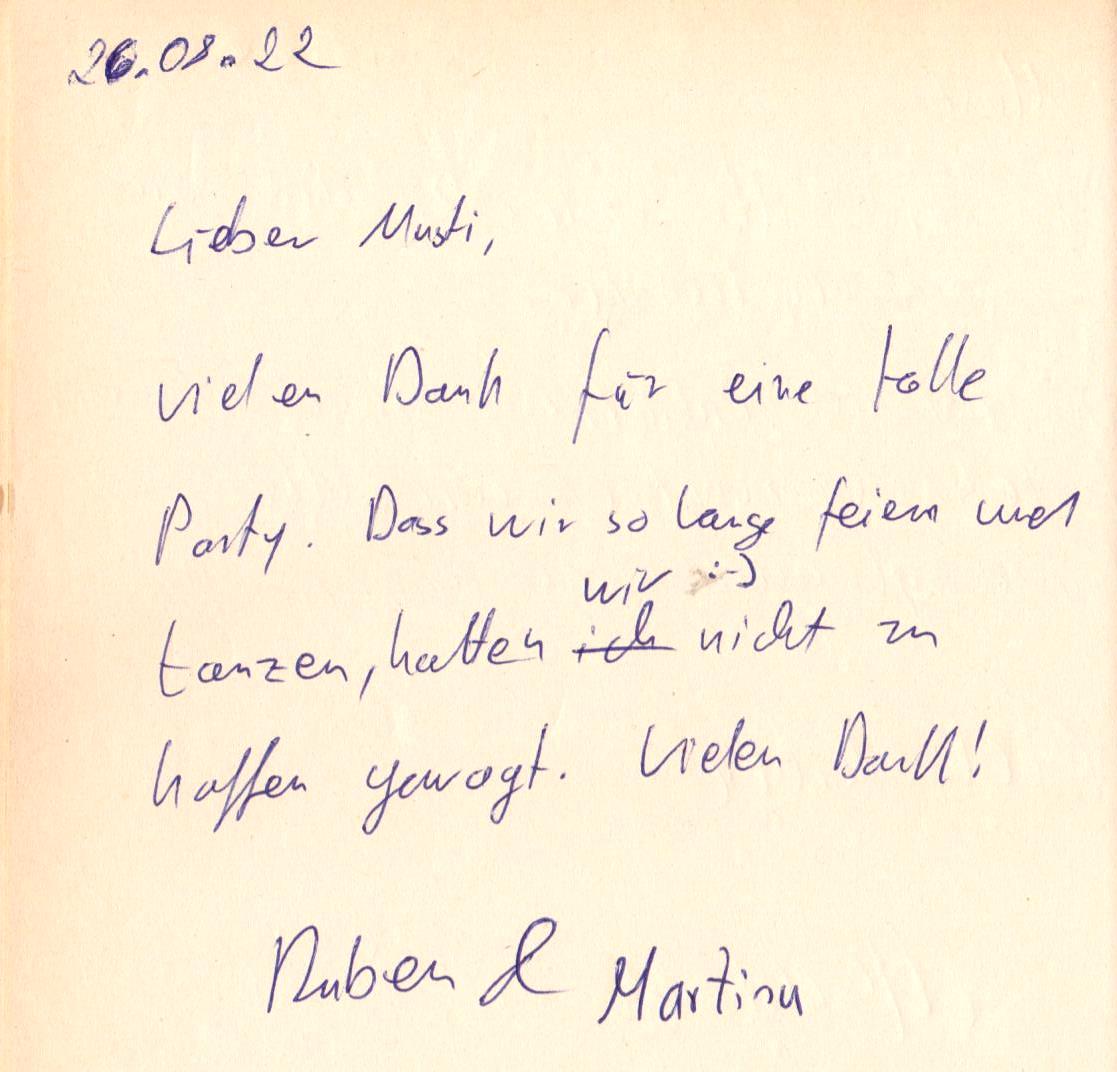 26.08.22
Lieber Musti,
vielen Dank für eine tolle
Party. Dass wir so lange feiern und
wir :-)
tanzen, hatten ich nicht zu
hoffen gewagt. Vielen Dank!
Ruben & Martina